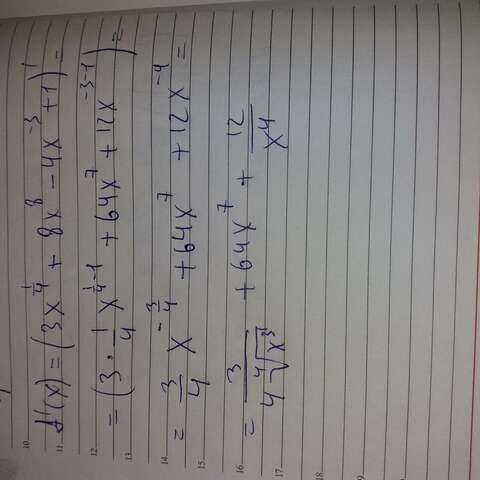 f'(x) = (3x^{1/4} + 8x^8 - 4x^{-3} + 1)' =
= (3 · 1/4 x^{1/4 - 1} + 64x^7 + 12x^{-3-1}) =
= 3/4 x^{-3/4} + 64x^7 + 12x^{-4} =
= 3/(4 ∜(x^3)) + 64x^7 + 12/x^4
10
11
12
13
14
15
16
17
18
19